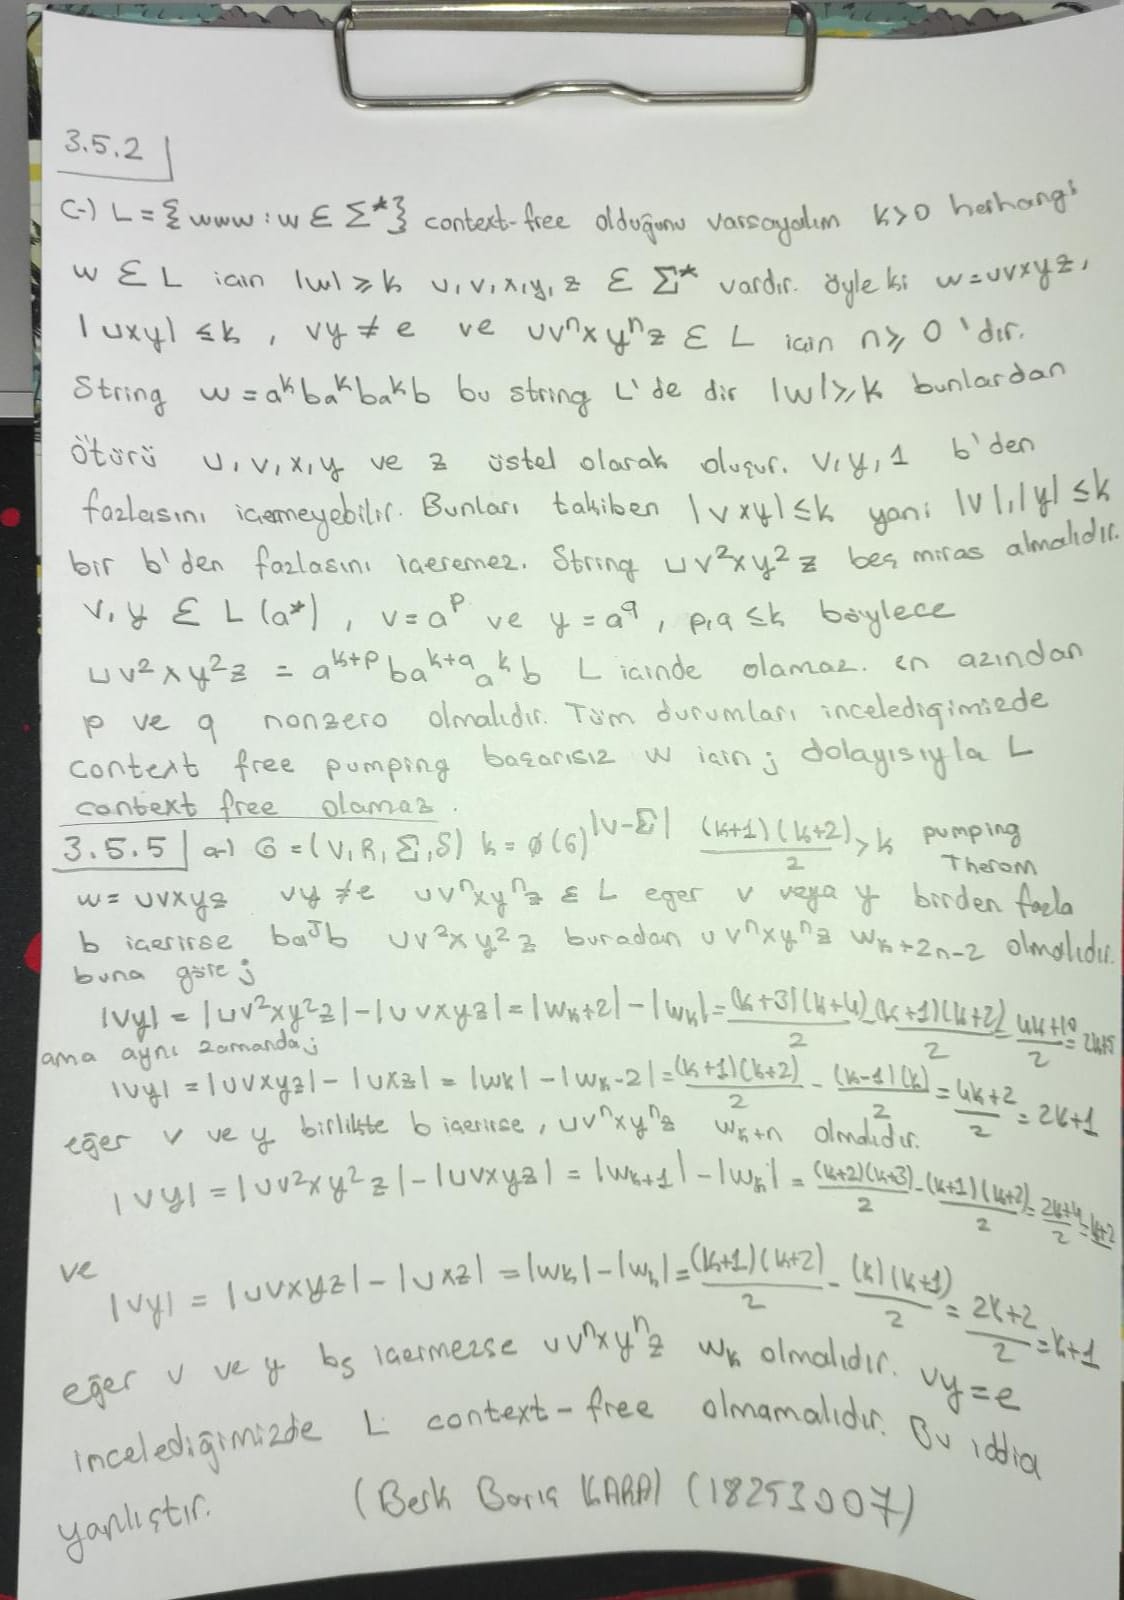 3.5.2
C-) L = { www : w ∈ Σ* } context-free olduğunu varsayalım k>0 herhangi
w ∈ L için |w| ≥ k u, v, x, y, z ∈ Σ* vardır. öyle ki w=uvxyz,
|uxy| ≤ k , vy ≠ e ve uvⁿxyⁿz ∈ L için n ≥ 0 'dır.
String w = aᵏbaᵏbaᵏb bu string L'de dir |w| ≥ k bunlardan
Ötürü u, v, x, y ve z üstel olarak oluşur. v, y, 1 b'den
fazlasını içermeyebilir. Bunları takiben |vxy| ≤ k yani |v|,|y| ≤ k
bir b'den fazlasını içeremez. String uv²xy²z beş miras almalıdır.
v, y ∈ L(a*) , v=aᵖ ve y=a^q , p,q ≤ k böylece
uv²xy²z = aᵏ⁺ᵖbaᵏ⁺^q aᵏb L içinde olamaz. en azından
p ve q nonzero olmalıdır. Tüm durumları incelediğimizde
context free pumping başarısız w için ; dolayısıyla L
context free olamaz.
3.5.5 a-) G = (V, R, Σ, S) k = ø(G)^|V-Σ| (k+1)(k+2)/2 > k pumping
Therom
w = uvxyz vy ≠ e uvⁿxyⁿz ∈ L eğer v veya y birden fazla
b içerirse baʲb uv²xy²z buradan uvⁿxyⁿz w_k+2n-2 olmalıdır.
buna göre ;
|vy| = |uv²xy²z| - |uvxyz| = |w_k+2| - |w_k| = (k+3)(k+4)/2 - (k+1)(k+2)/2 = 4k+10/2 = 2k+5
ama aynı zamanda ;
|vy| = |uvxyz| - |uxz| = |w_k| - |w_k-2| = (k+1)(k+2)/2 - (k-1)(k)/2 = 4k+2/2 = 2k+1
eğer v ve y birlikte b içerirse, uvⁿxyⁿz w_k+n olmalıdır.
|vy| = |uv²xy²z| - |uvxyz| = |w_k+1| - |w_k| = (k+2)(k+3)/2 - (k+1)(k+2)/2 = 2k+4/2 = k+2
ve
|vy| = |uvxyz| - |uxz| = |w_k| - |w_k| = (k+1)(k+2)/2 - (k)(k+1)/2 = 2k+2/2 = k+1
eğer v ve y bs içermezse uvⁿxyⁿz w_k olmalıdır. vy=e
incelediğimizde L context-free olmamalıdır. Bu iddia
yanlıştır. (Berk Barış KARA) (18253007)